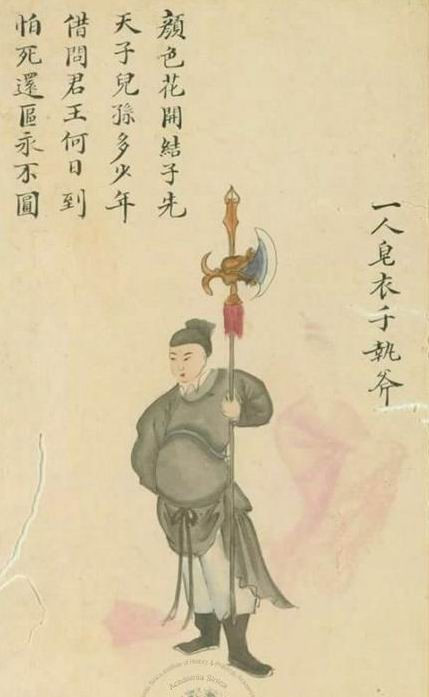 一人皂衣手執斧
顏色花開結子先
天子兒孫多少年
借問君王何日到
怕死還區永不圓
Academia Sinica